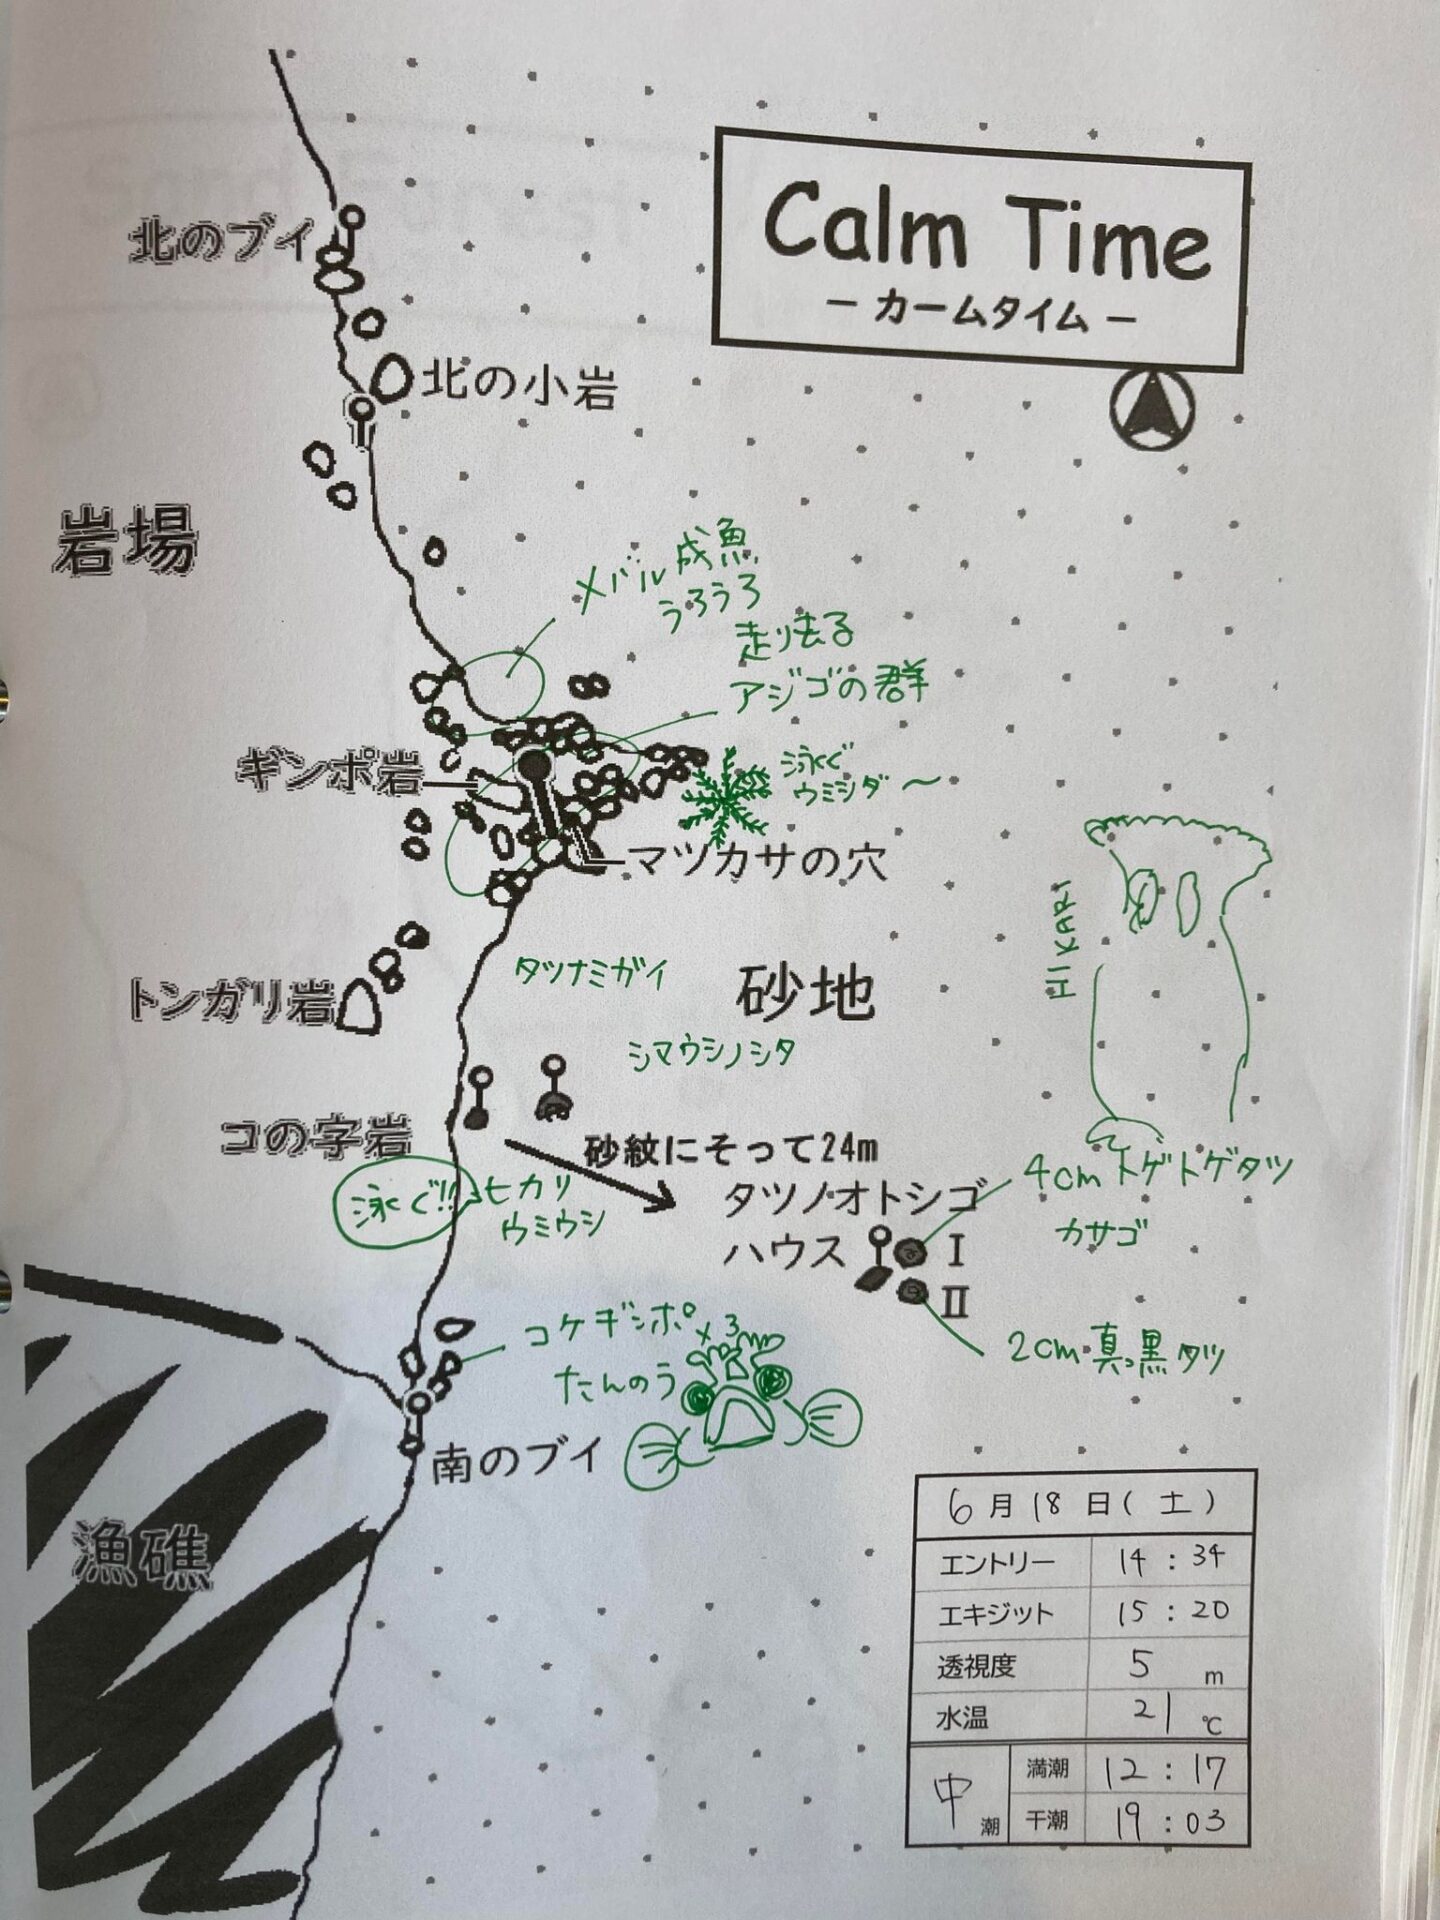 Calm Time
ー カームタイム ー
北のブイ
北の小岩
岩場
メバル成魚
うろうろ
走り去る
アジゴの群
ギンポ岩
泳ぐ
ウミシダ〜
マツカサの穴
HIKARI
タツナミガイ
砂地
トンガリ岩
シマウシノシタ
コの字岩
砂紋にそって24m
泳ぐ!!
ヒカリ
ウミウシ
タツノオトシゴ
ハウス
I
II
4cmトゲトゲタツ
カサゴ
2cm真っ黒タツ
コケギンポ×3
たんのう
南のブイ
漁礁
6月18日(土)
エントリー 14:34
エキジット 15:20
透視度 5 m
水温 21 ℃
中潮
満潮 12:17
干潮 19:03